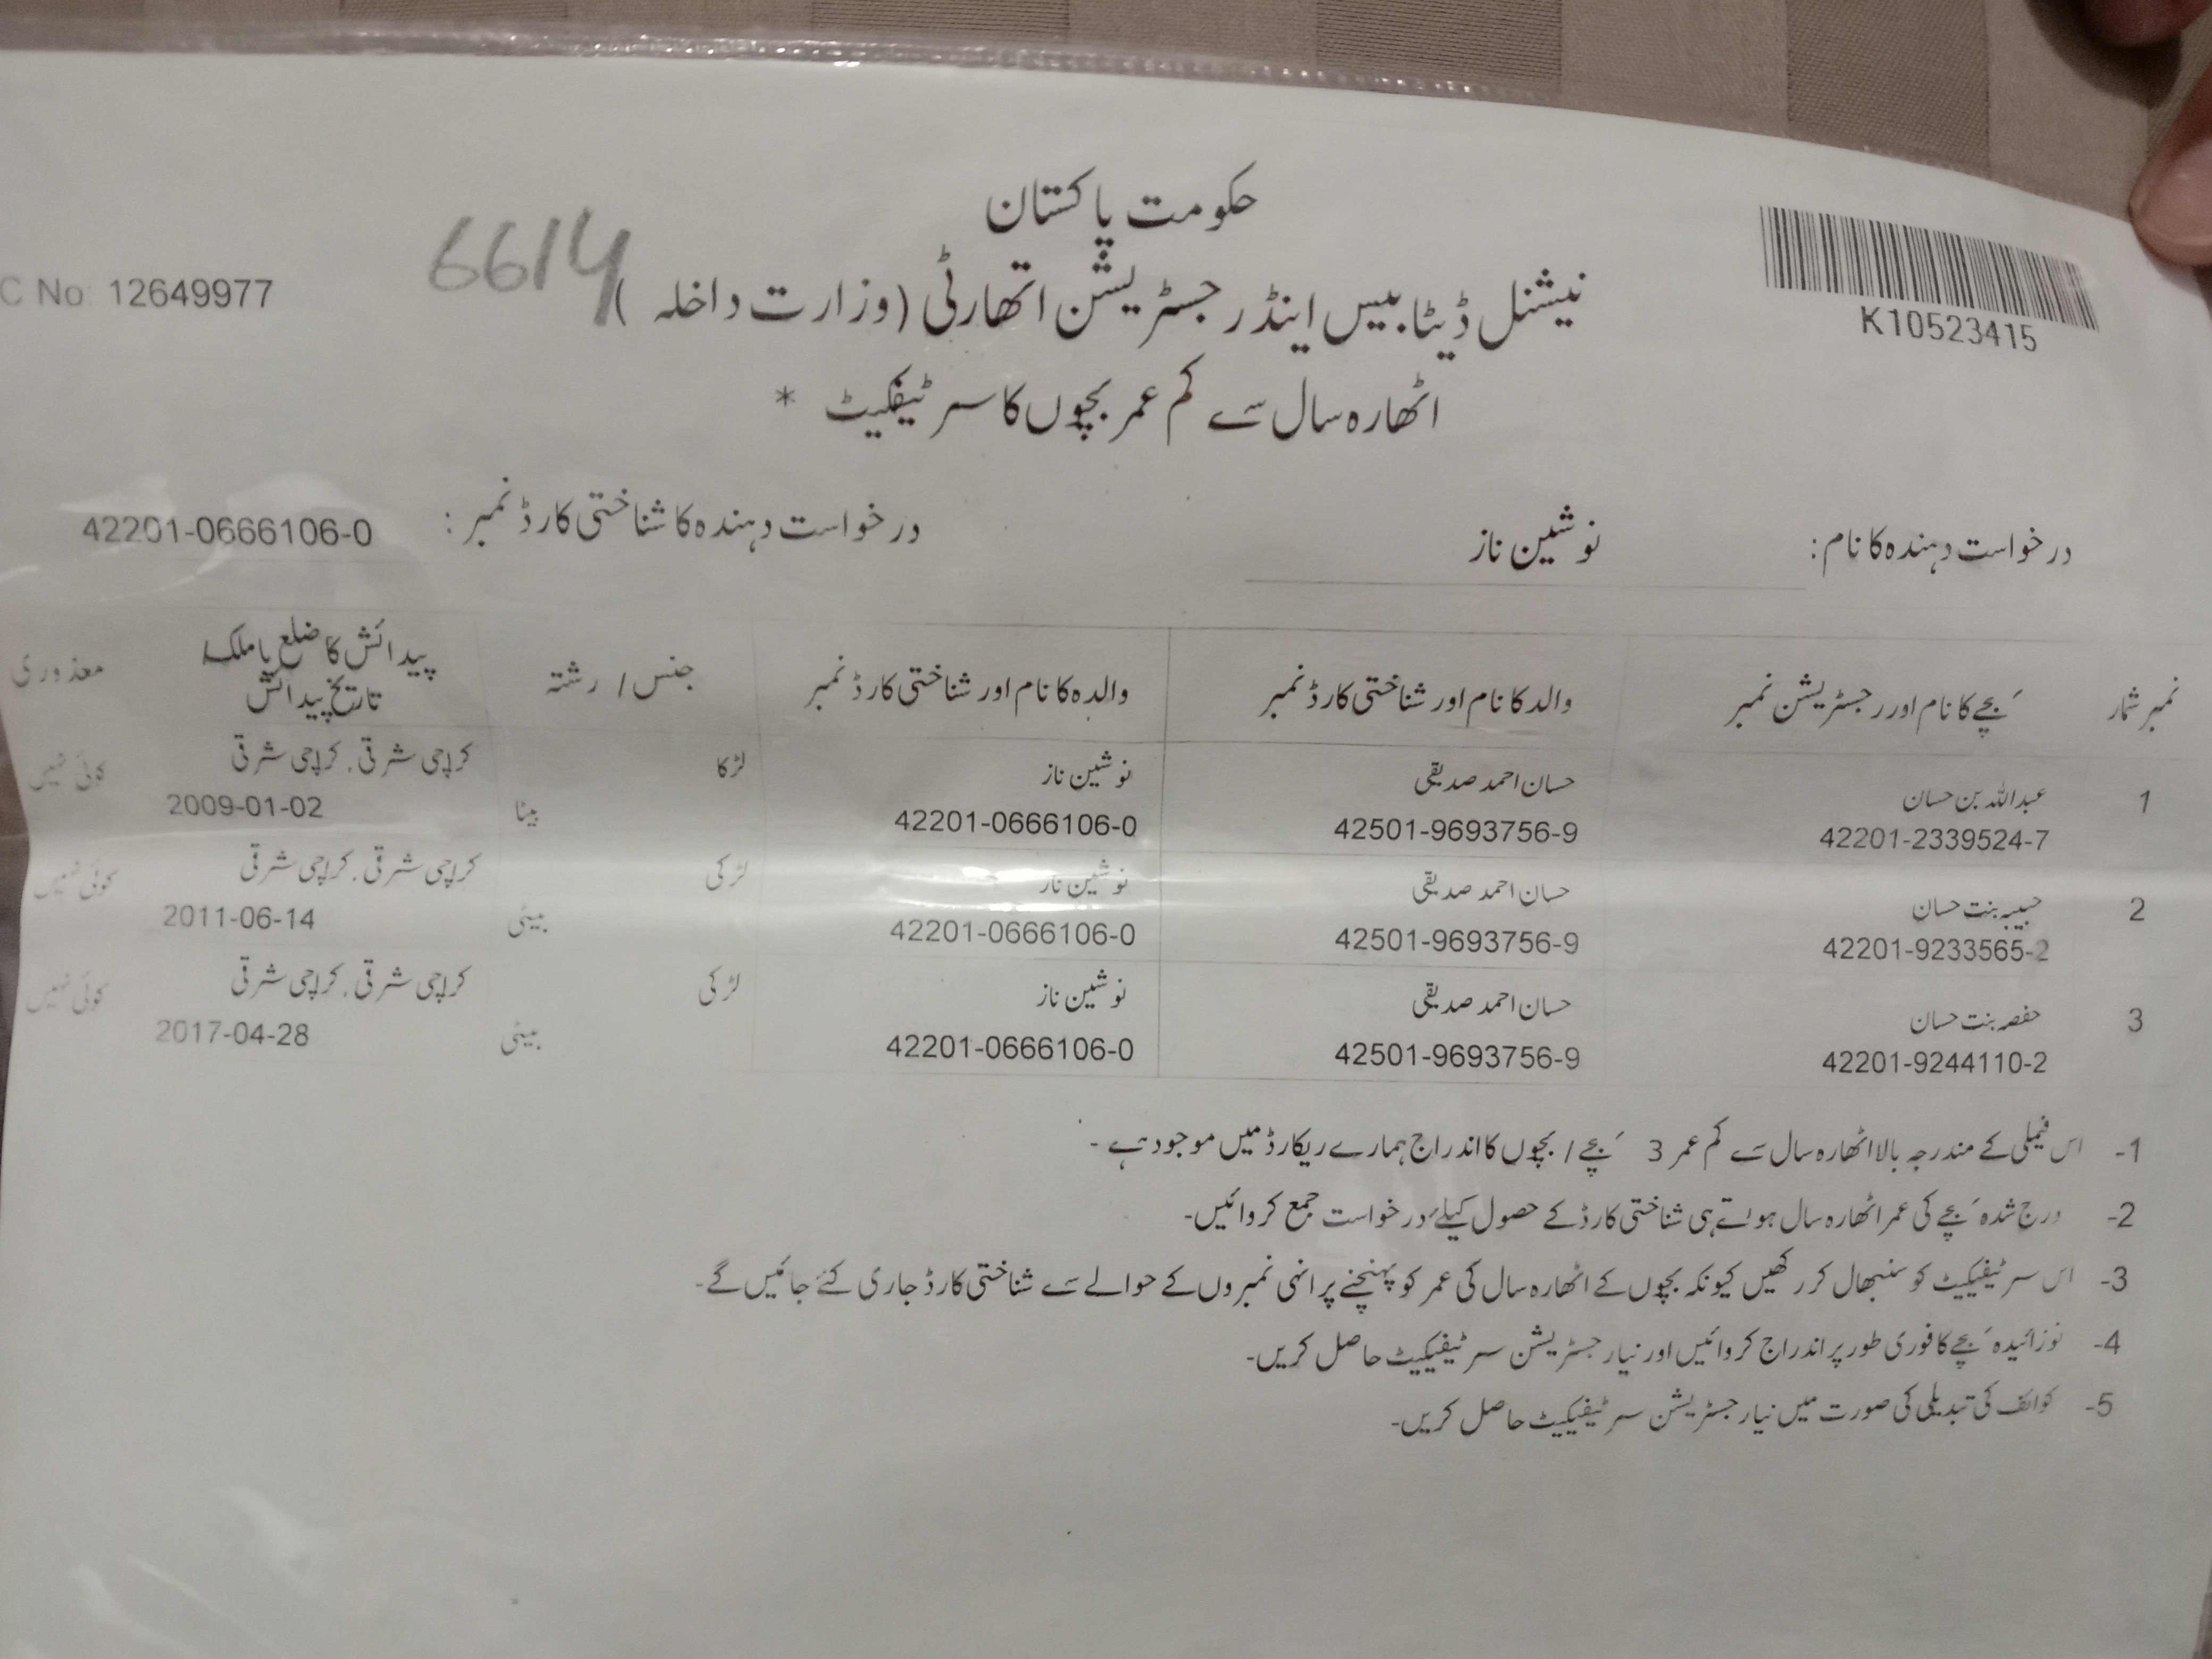 حکومت پاکستان
6614
K10523415
C No: 12649977
نیشنل ڈیٹا بیس اینڈ رجسٹریشن اتھارٹی (وزارت داخلہ)
اٹھارہ سال سے کم عمر بچوں کا سرٹیفکیٹ *
درخواست دہندہ کا نام: نوشین ناز درخواست دہندہ کا شناختی کارڈ نمبر: 42201-0666106-0
نمبر شمار بچے کا نام اور رجسٹریشن نمبر والد کا نام اور شناختی کارڈ نمبر والدہ کا نام اور شناختی کارڈ نمبر جنس / رشتہ پیدائش کا ضلع یا ملک/ معذوری
تاریخ پیدائش
1 عبداللہ بن حسان حسان احمد صدیقی نوشین ناز لڑکا کراچی شرقی, کراچی شرقی کوئی نہیں
42201-2339524-7 42501-9693756-9 42201-0666106-0 بیٹا 2009-01-02
2 حبیبہ بنت حسان حسان احمد صدیقی نوشین ناز لڑکی کراچی شرقی, کراچی شرقی کوئی نہیں
42201-9233565-2 42501-9693756-9 42201-0666106-0 بیٹی 2011-06-14
3 حفصہ بنت حسان حسان احمد صدیقی نوشین ناز لڑکی کراچی شرقی, کراچی شرقی کوئی نہیں
42201-9244110-2 42501-9693756-9 42201-0666106-0 بیٹی 2017-04-28
1- اس فیملی کے مندرجہ بالا اٹھارہ سال سے کم عمر 3 بچے / بچوں کا اندراج ہمارے ریکارڈ میں موجود ہے -
2- درج شدہ بچے کی عمر اٹھارہ سال ہوتے ہی شناختی کارڈ کے حصول کیلئے درخواست جمع کروائیں-
3- اس سرٹیفیکیٹ کو سنبھال کر رکھیں کیونکہ بچوں کے اٹھارہ سال کی عمر کو پہنچنے پر انہی نمبروں کے حوالے سے شناختی کارڈ جاری کئے جائیں گے-
4- نوزائیدہ بچے کا فوری طور پر اندراج کروائیں اور نیا رجسٹریشن سرٹیفیکیٹ حاصل کریں-
5- کوائف کی تبدیلی کی صورت میں نیا رجسٹریشن سرٹیفیکیٹ حاصل کریں-